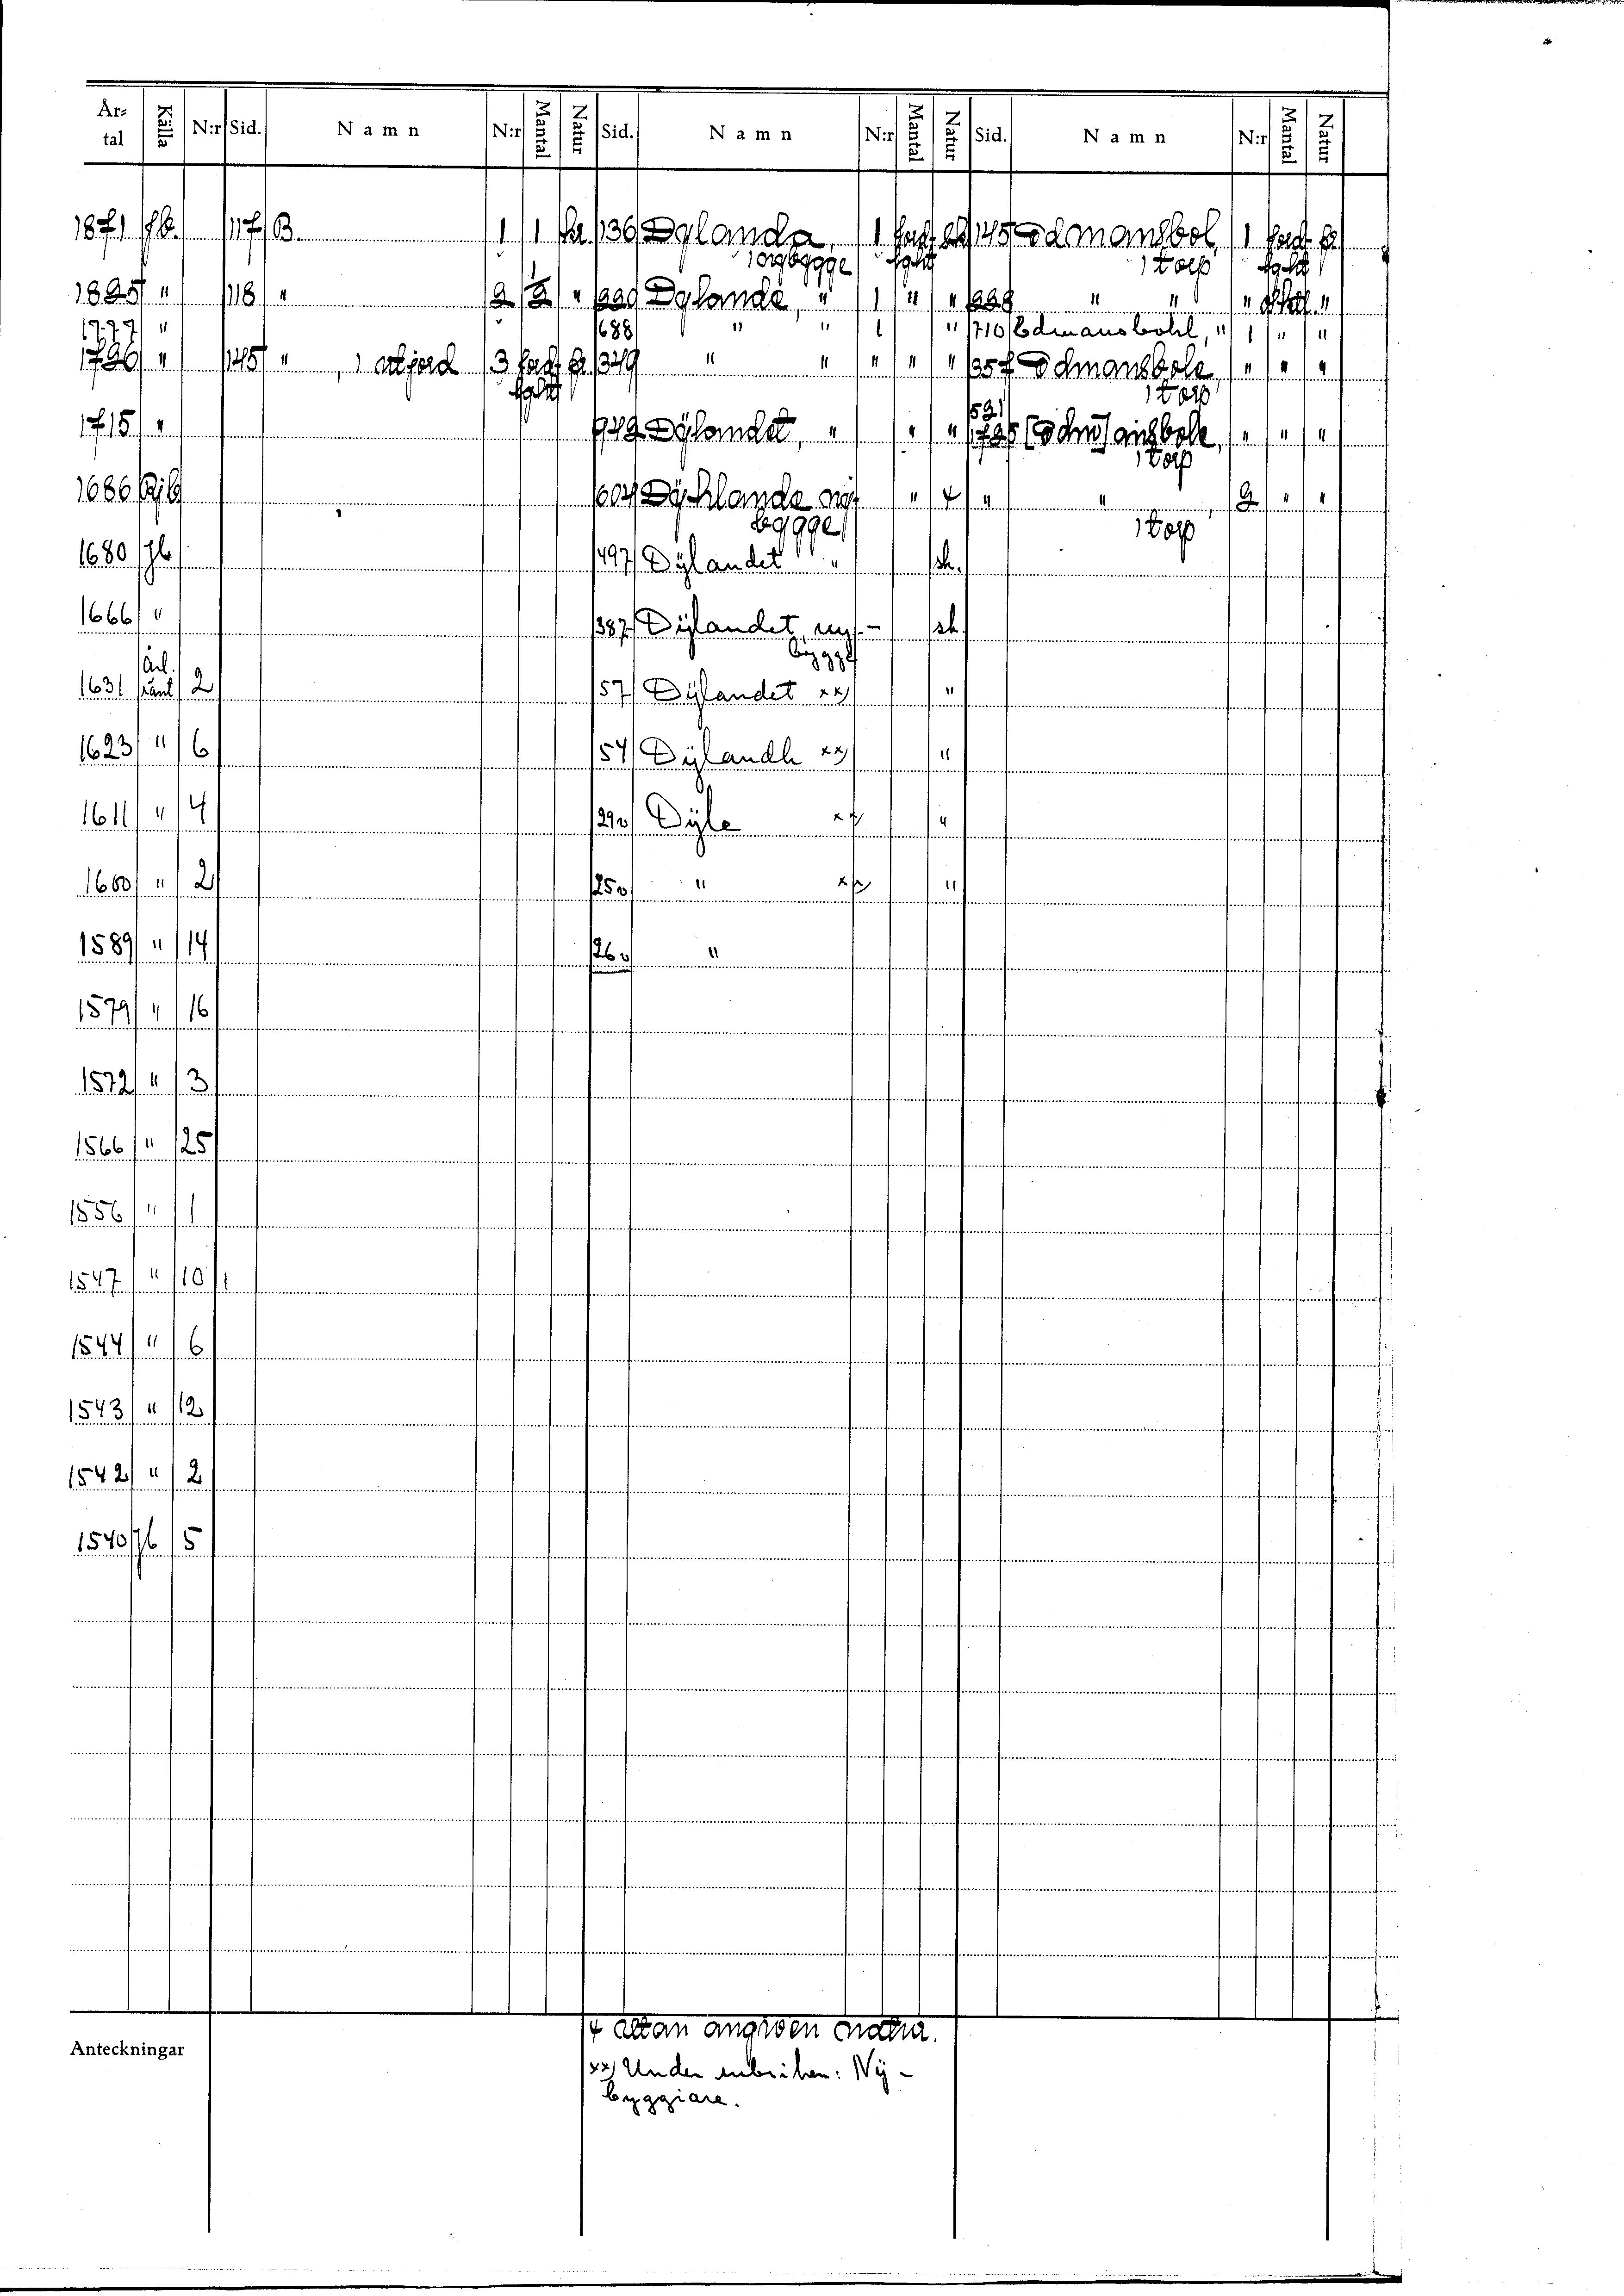 År-tal Källa N:r Sid. Namn N:r Mantal Natur Sid. Namn N:r Mantal Natur Sid. Namn N:r Mantal Natur
1871 Jb. 117 B. 1 1 kr. 136 Dylanda, 1 förd. sk 145 Edmansbol, 1 förd. fr.
1 torp
1825 " 118 " 2 1/2 " 220 Dylande, " 1 " " 228 " " " "
1777 " 688 " " 1 " 710 Edmansbohl, " 1 " "
1726 " 145 " , 1 utjord 3 förd. fr. 349 " " " " " 357 Edmansbole, " " "
1 torp
1715 " 942 Dÿlandet, " " " 591 1725 [Edm]ansbole, " " "
1 torp
1686 Rjb 604 Dÿhlande nÿ- " + " " , 2 " "
bygge 1 torp
1680 Jb 497 Dÿlandet " sk.
1666 " 387 Dÿlandet, ny- – sk.
bygge
1631 Årl. ränt 2 57 Dÿlandet xx) "
1623 " 6 54 Dÿlandh xx) "
1611 " 4 29v Dÿle xx) "
1600 " 2 25v " xx) "
1589 " 14 26v "
1579 " 16
1572 " 3
1566 " 25
1556 " 1
1547 " 10
1544 " 6
1543 " 12
1542 " 2
1540 Jb 5
Anteckningar
+ utan angiven natur.
xx) Under rubriken: Nÿ-
byggiare.